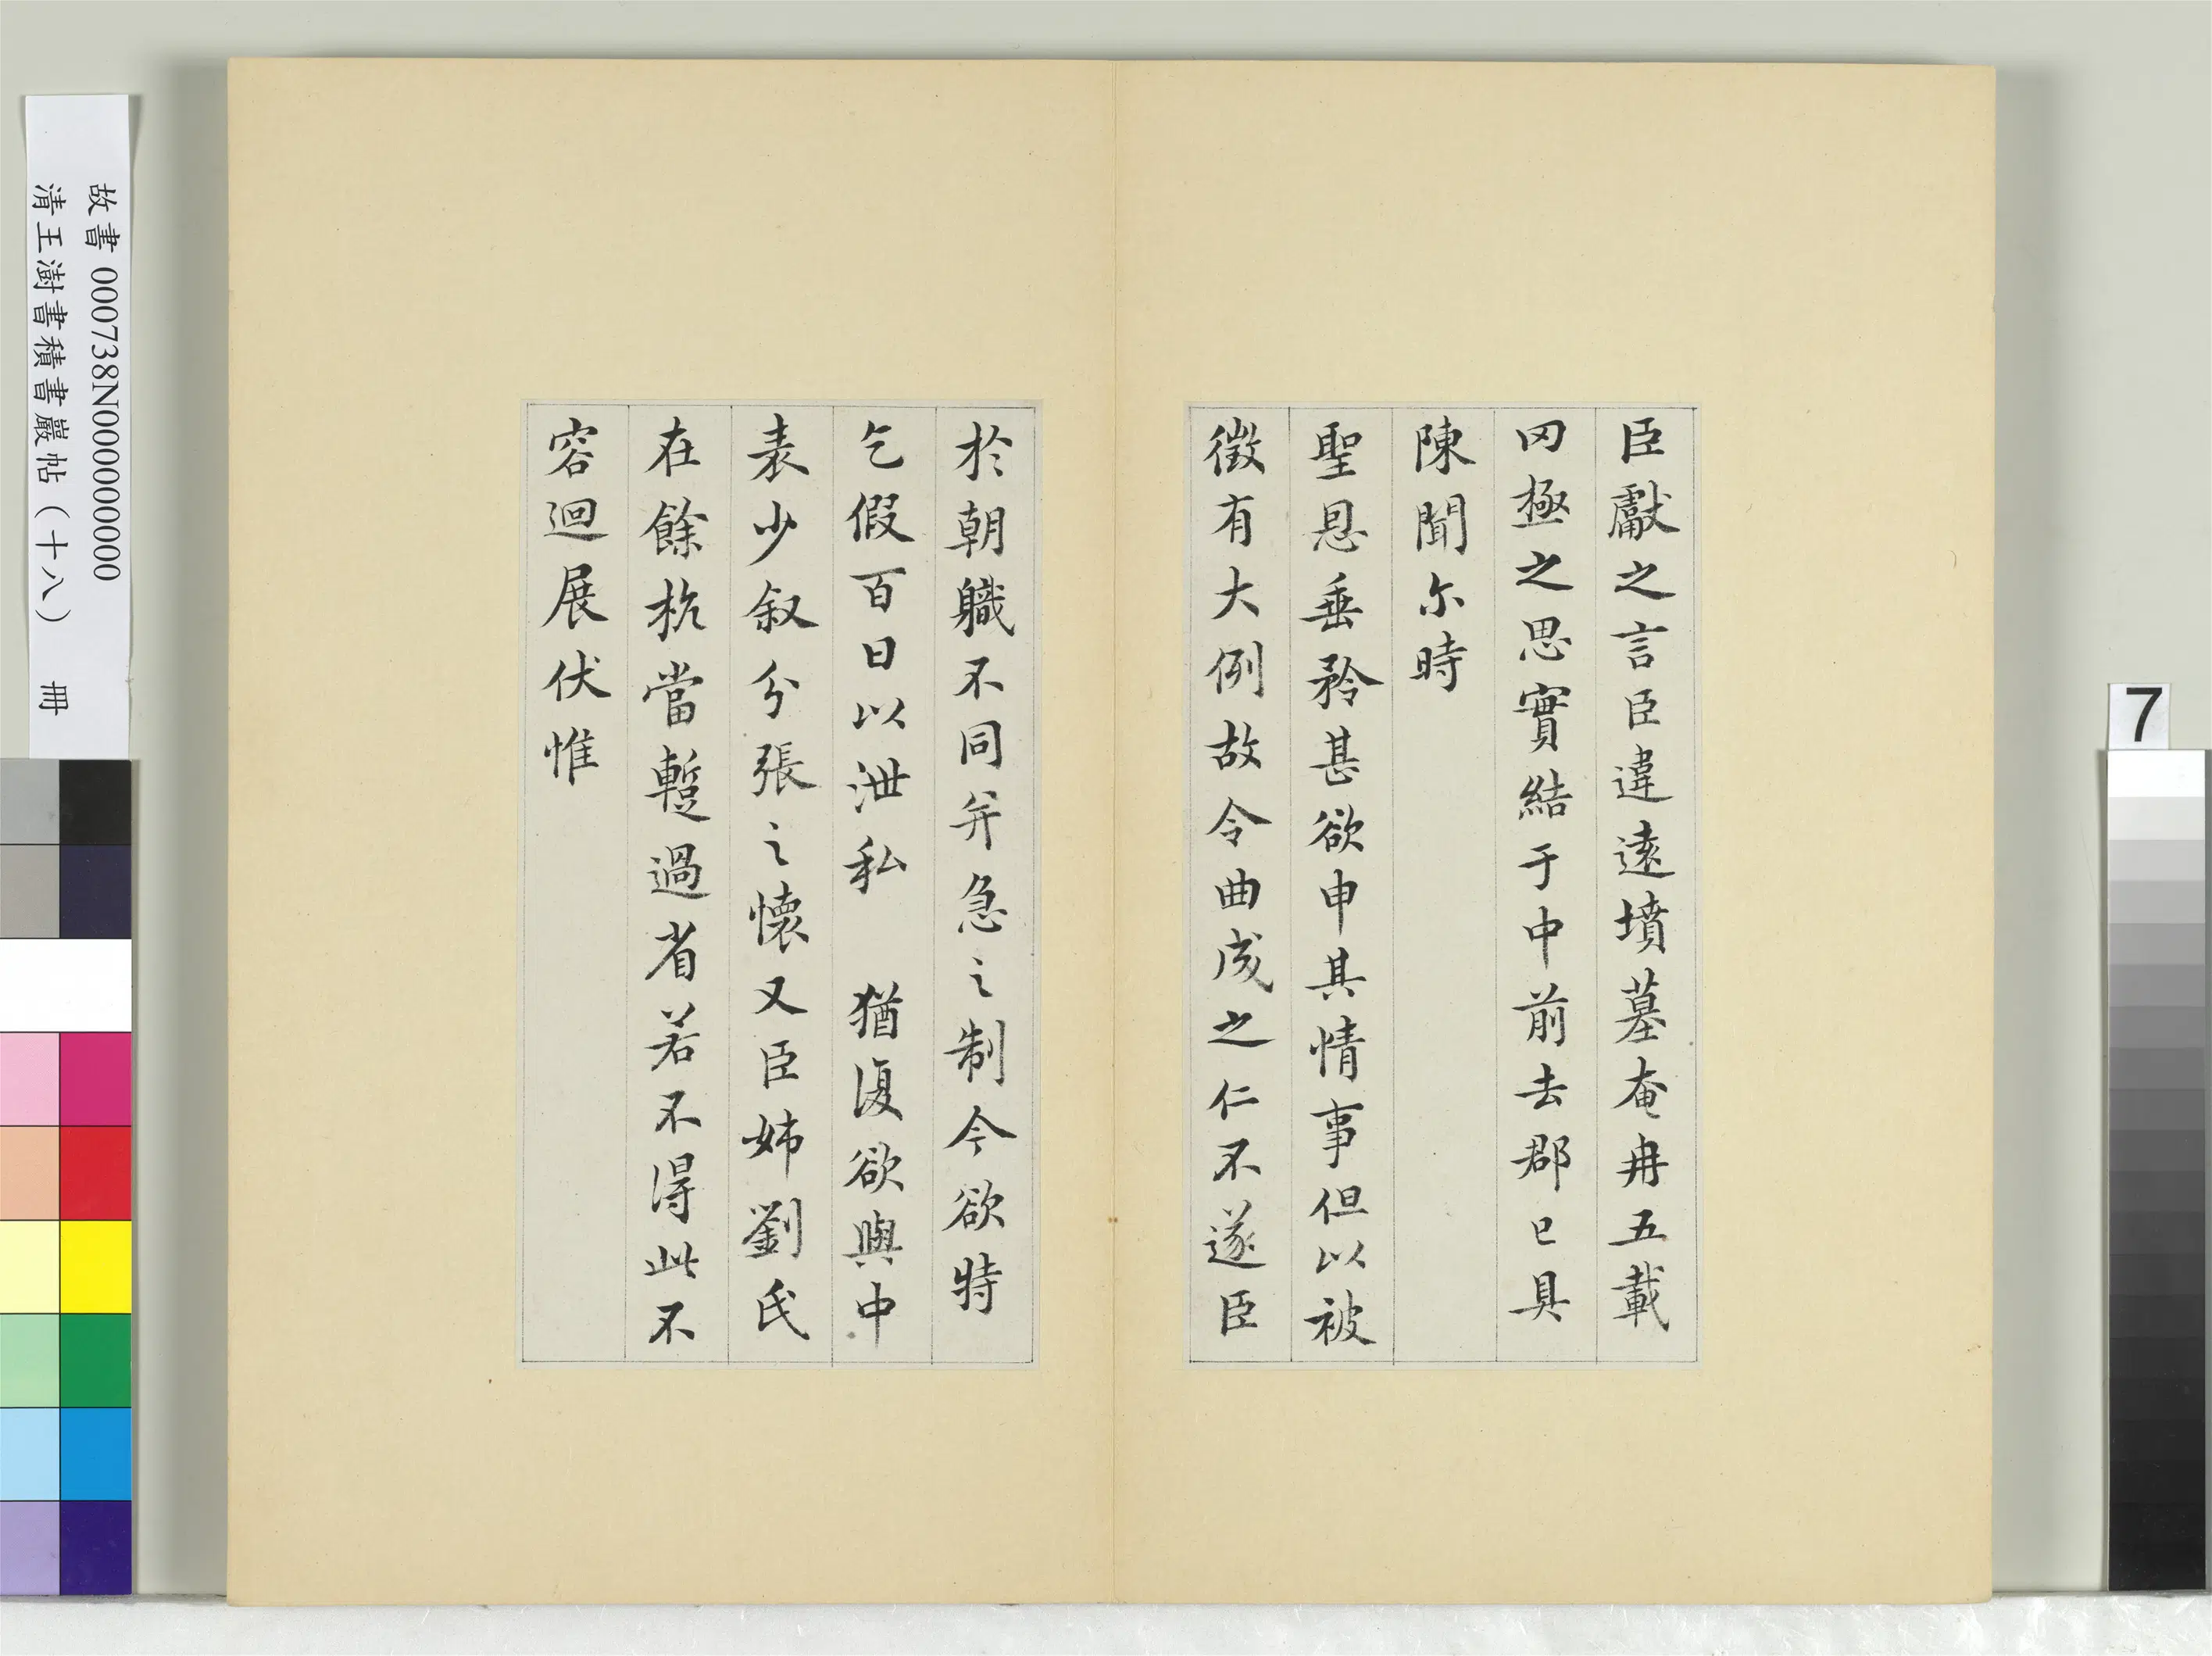 臣獻之言臣違遠墳墓奄冉五載
罔極之思實結于中前去郡已具
陳聞尒時
聖恩垂矜甚欲申其情事但以被
徵有大例故令曲成之仁不遂臣
於朝職不同并急之制今欲特
乞假百日以泄私 猶復欲與中
表少叙分張之懷又臣姊劉氏
在餘杭當蹔過省若不得此不
容迴展伏惟
故書 000738N000000000
清王澍書積書巖帖(十八) 冊
7